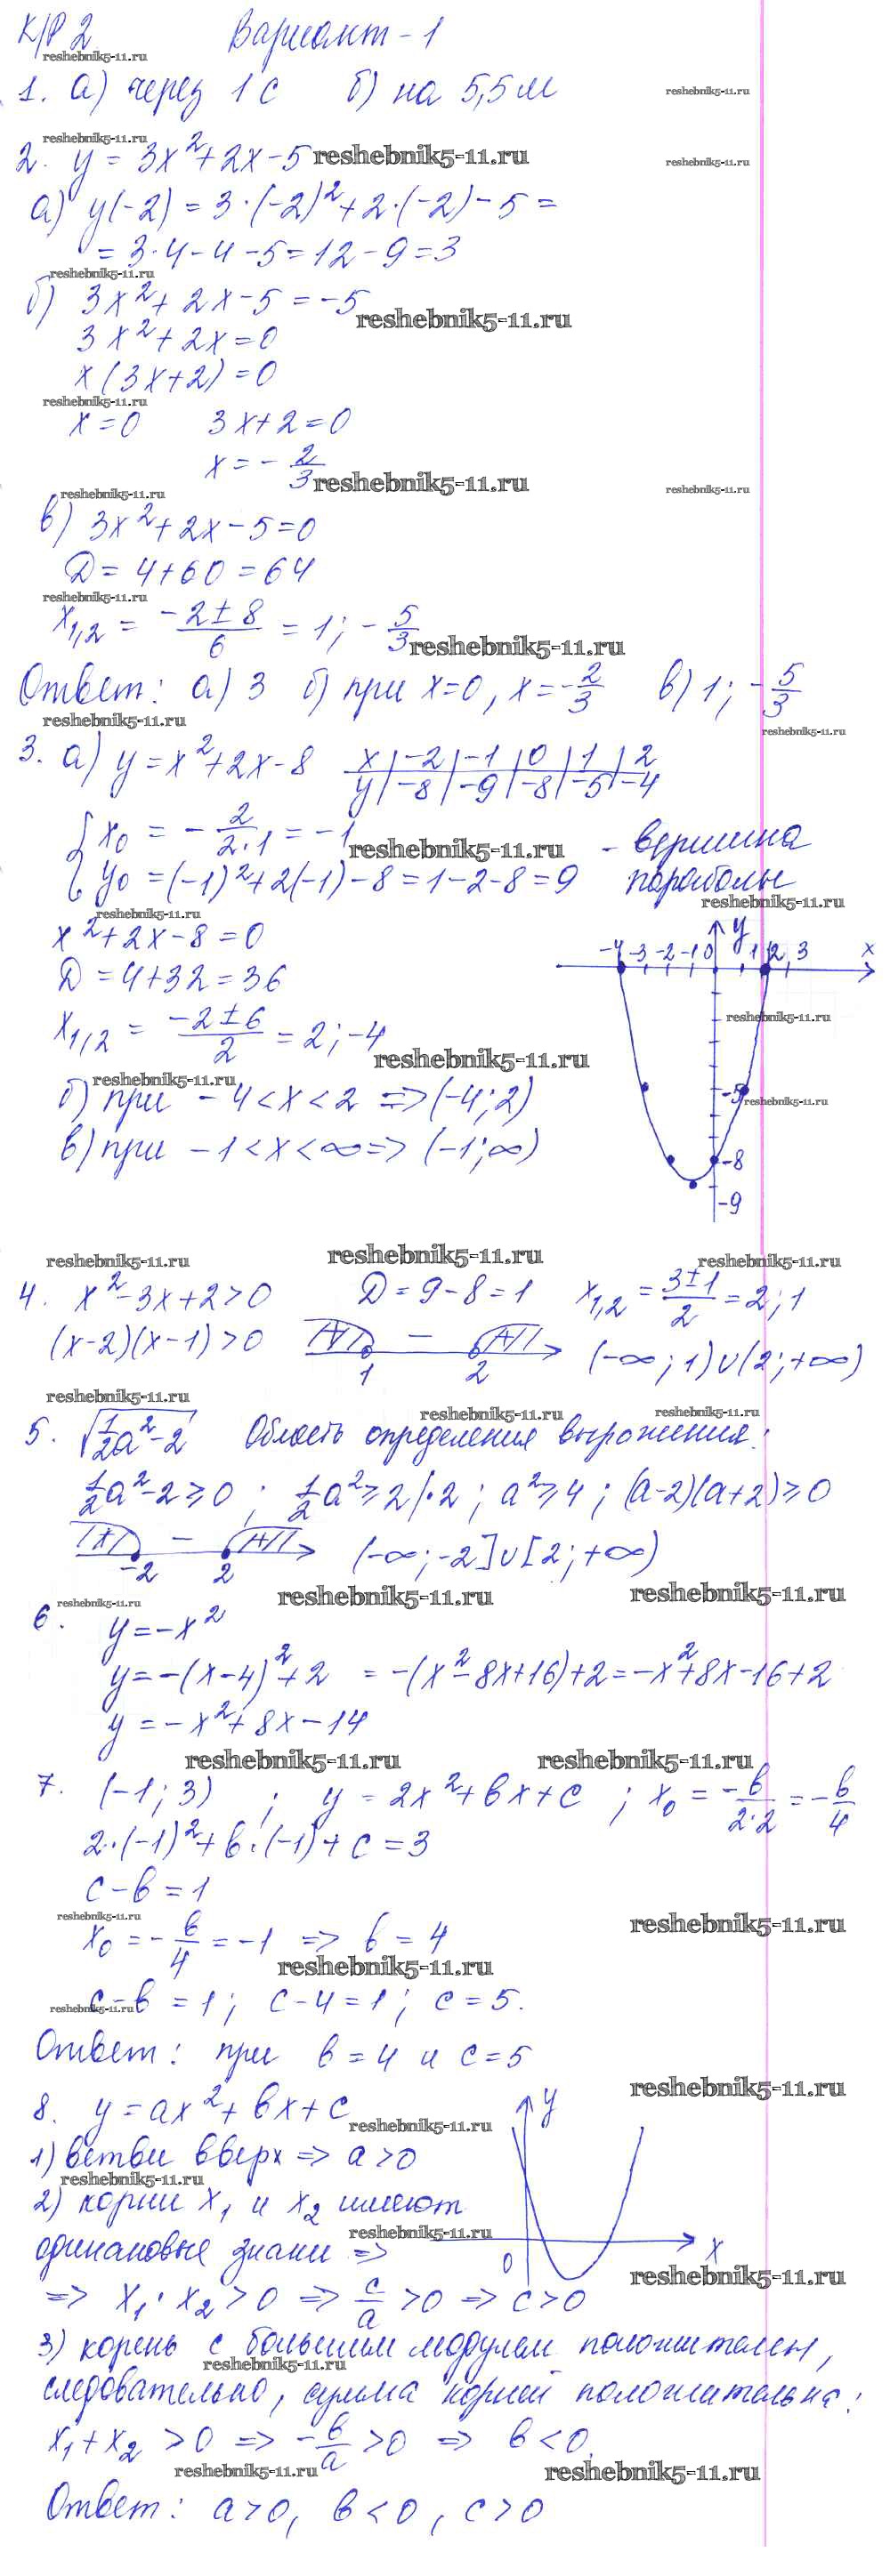 К/Р 2 Вариант - 1
reshebnik5-11.ru
1. а) через 1 с б) на 5,5 м
reshebnik5-11.ru
reshebnik5-11.ru
2. y = 3x² + 2x - 5
reshebnik5-11.ru
reshebnik5-11.ru
а) y(-2) = 3·(-2)² + 2·(-2) - 5 =
= 3·4 - 4 - 5 = 12 - 9 = 3
reshebnik5-11.ru
б) 3x² + 2x - 5 = -5
reshebnik5-11.ru
3x² + 2x = 0
x(3x+2) = 0
reshebnik5-11.ru
x = 0 3x + 2 = 0
x = - 2/3
reshebnik5-11.ru
reshebnik5-11.ru
reshebnik5-11.ru
в) 3x² + 2x - 5 = 0
D = 4 + 60 = 64
reshebnik5-11.ru
x1,2 = (-2 ± 8)/6 = 1; - 5/3
reshebnik5-11.ru
Ответ: а) 3 б) при x = 0, x = - 2/3 в) 1; - 5/3
reshebnik5-11.ru
reshebnik5-11.ru
3. а) y = x² + 2x - 8
x | -2 | -1 | 0 | 1 | 2
y | -8 | -9 | -8 | -5 | -4
{ x0 = - 2/(2·1) = -1
reshebnik5-11.ru
- вершина
y0 = (-1)² + 2(-1) - 8 = 1 - 2 - 8 = 9 параболы
reshebnik5-11.ru
reshebnik5-11.ru
x² + 2x - 8 = 0
D = 4 + 32 = 36
x1,2 = (-2 ± 6)/2 = 2; -4
reshebnik5-11.ru
reshebnik5-11.ru
б) при -4 < x < 2 => (-4; 2)
в) при -1 < x < ∞ => (-1; ∞)
y
-4 -3 -2 -1 0 1 2 3 x
reshebnik5-11.ru
-5
reshebnik5-11.ru
-8
-9
reshebnik5-11.ru
reshebnik5-11.ru
reshebnik5-11.ru
4. x² - 3x + 2 > 0 D = 9 - 8 = 1 x1,2 = (3 ± 1)/2 = 2; 1
(x-2)(x-1) > 0 + - + (-∞; 1) ∪ (2; +∞)
1 2
reshebnik5-11.ru
reshebnik5-11.ru
reshebnik5-11.ru
5. √(1/2 a² - 2) Область определения выражения:
1/2 a² - 2 ≥ 0; 1/2 a² ≥ 2 |·2; a² ≥ 4; (a-2)(a+2) ≥ 0
+ - + (-∞; -2] ∪ [2; +∞)
-2 2
reshebnik5-11.ru
reshebnik5-11.ru
reshebnik5-11.ru
6. y = -x²
y = -(x-4)² + 2 = -(x² - 8x + 16) + 2 = -x² + 8x - 16 + 2
y = -x² + 8x - 14
reshebnik5-11.ru
reshebnik5-11.ru
7. (-1; 3) ; y = 2x² + bx + c ; x0 = -b/(2·2) = - b/4
2·(-1)² + b·(-1) + c = 3
c - b = 1
reshebnik5-11.ru
reshebnik5-11.ru
x0 = - b/4 = -1 => b = 4
reshebnik5-11.ru
reshebnik5-11.ru
c - b = 1; c - 4 = 1; c = 5.
Ответ: при b = 4 и c = 5
reshebnik5-11.ru
8. y = ax² + bx + c
y
reshebnik5-11.ru
1) ветви вверх => a > 0
reshebnik5-11.ru
2) корни x1 и x2 имеют
reshebnik5-11.ru
одинаковые знаки =>
0 x
reshebnik5-11.ru
=> x1 · x2 > 0 => c/a > 0 => c > 0
3) корень с большим модулем положителен,
reshebnik5-11.ru
следовательно, сумма корней положительна:
x1 + x2 > 0 => - b/a > 0 => b < 0.
reshebnik5-11.ru
reshebnik5-11.ru
Ответ: a > 0, b < 0, c > 0